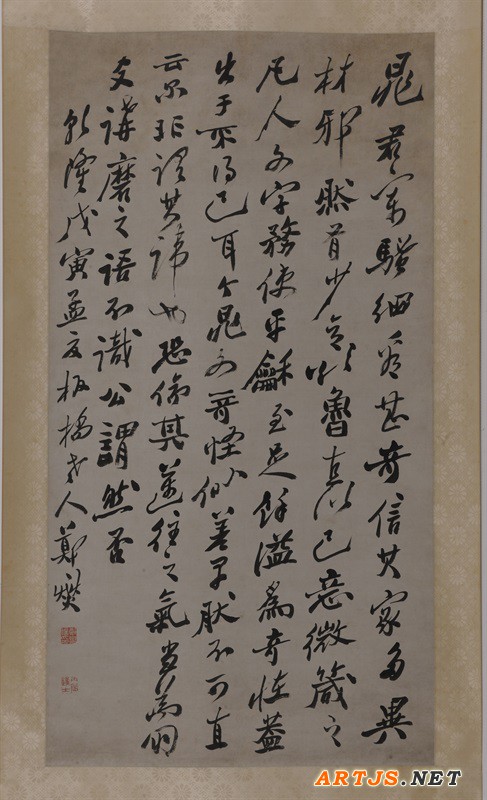 晁君寄騷細看甚奇信其家多異
材邪然有少意欲魯直以己意微箴之
凡人文字務使平龢至足餘溢爲奇怪蓋
出于不得已耳今晁文奇怪似差早然不可直
云尔非謂其諱也恐傷其邁往之氣當為朋
友講磨之語不識公謂然否
乾隆戊寅孟夏板橋老人鄭燮
ARTJS.NET